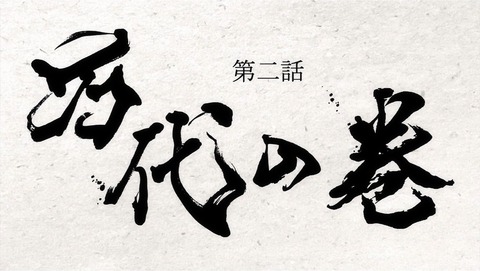 第二話
万代の巻